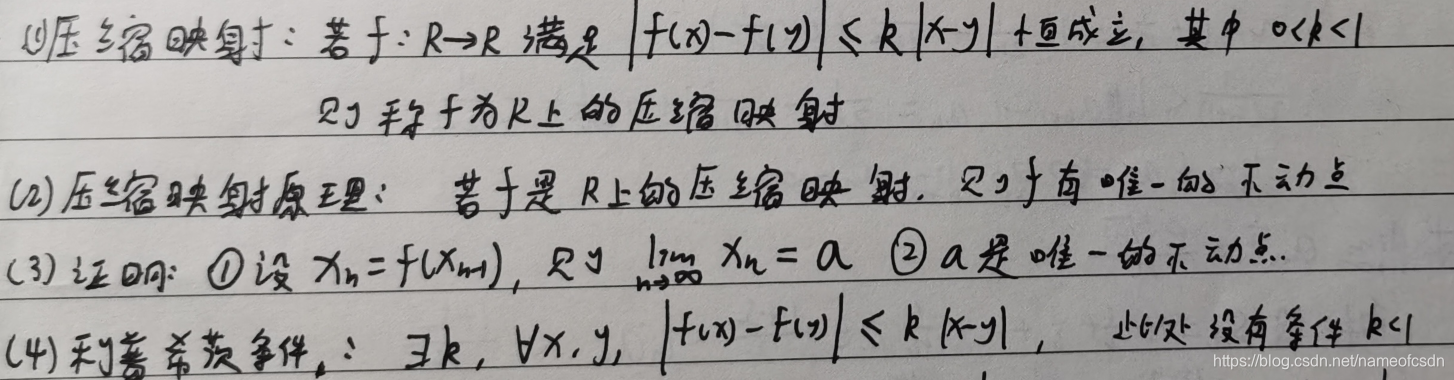 (1)压缩映射：若f：R→R 满足 |f(x)-f(y)| ≤ k |x-y| 恒成立，其中 0<k<1
则称f为R上的压缩映射
(2)压缩映射原理：若f是R上的压缩映射，则f有唯一的不动点
(3)证明：①设 xₙ=f(xₙ₋₁)，则 lim n→∞ xₙ=a ②a是唯一的不动点.
(4)利普希茨条件：∃k，∀x，y，|f(x)-f(y)| ≤ k |x-y|，此处没有条件 k<1
https://blog.csdn.net/nameofcsdn